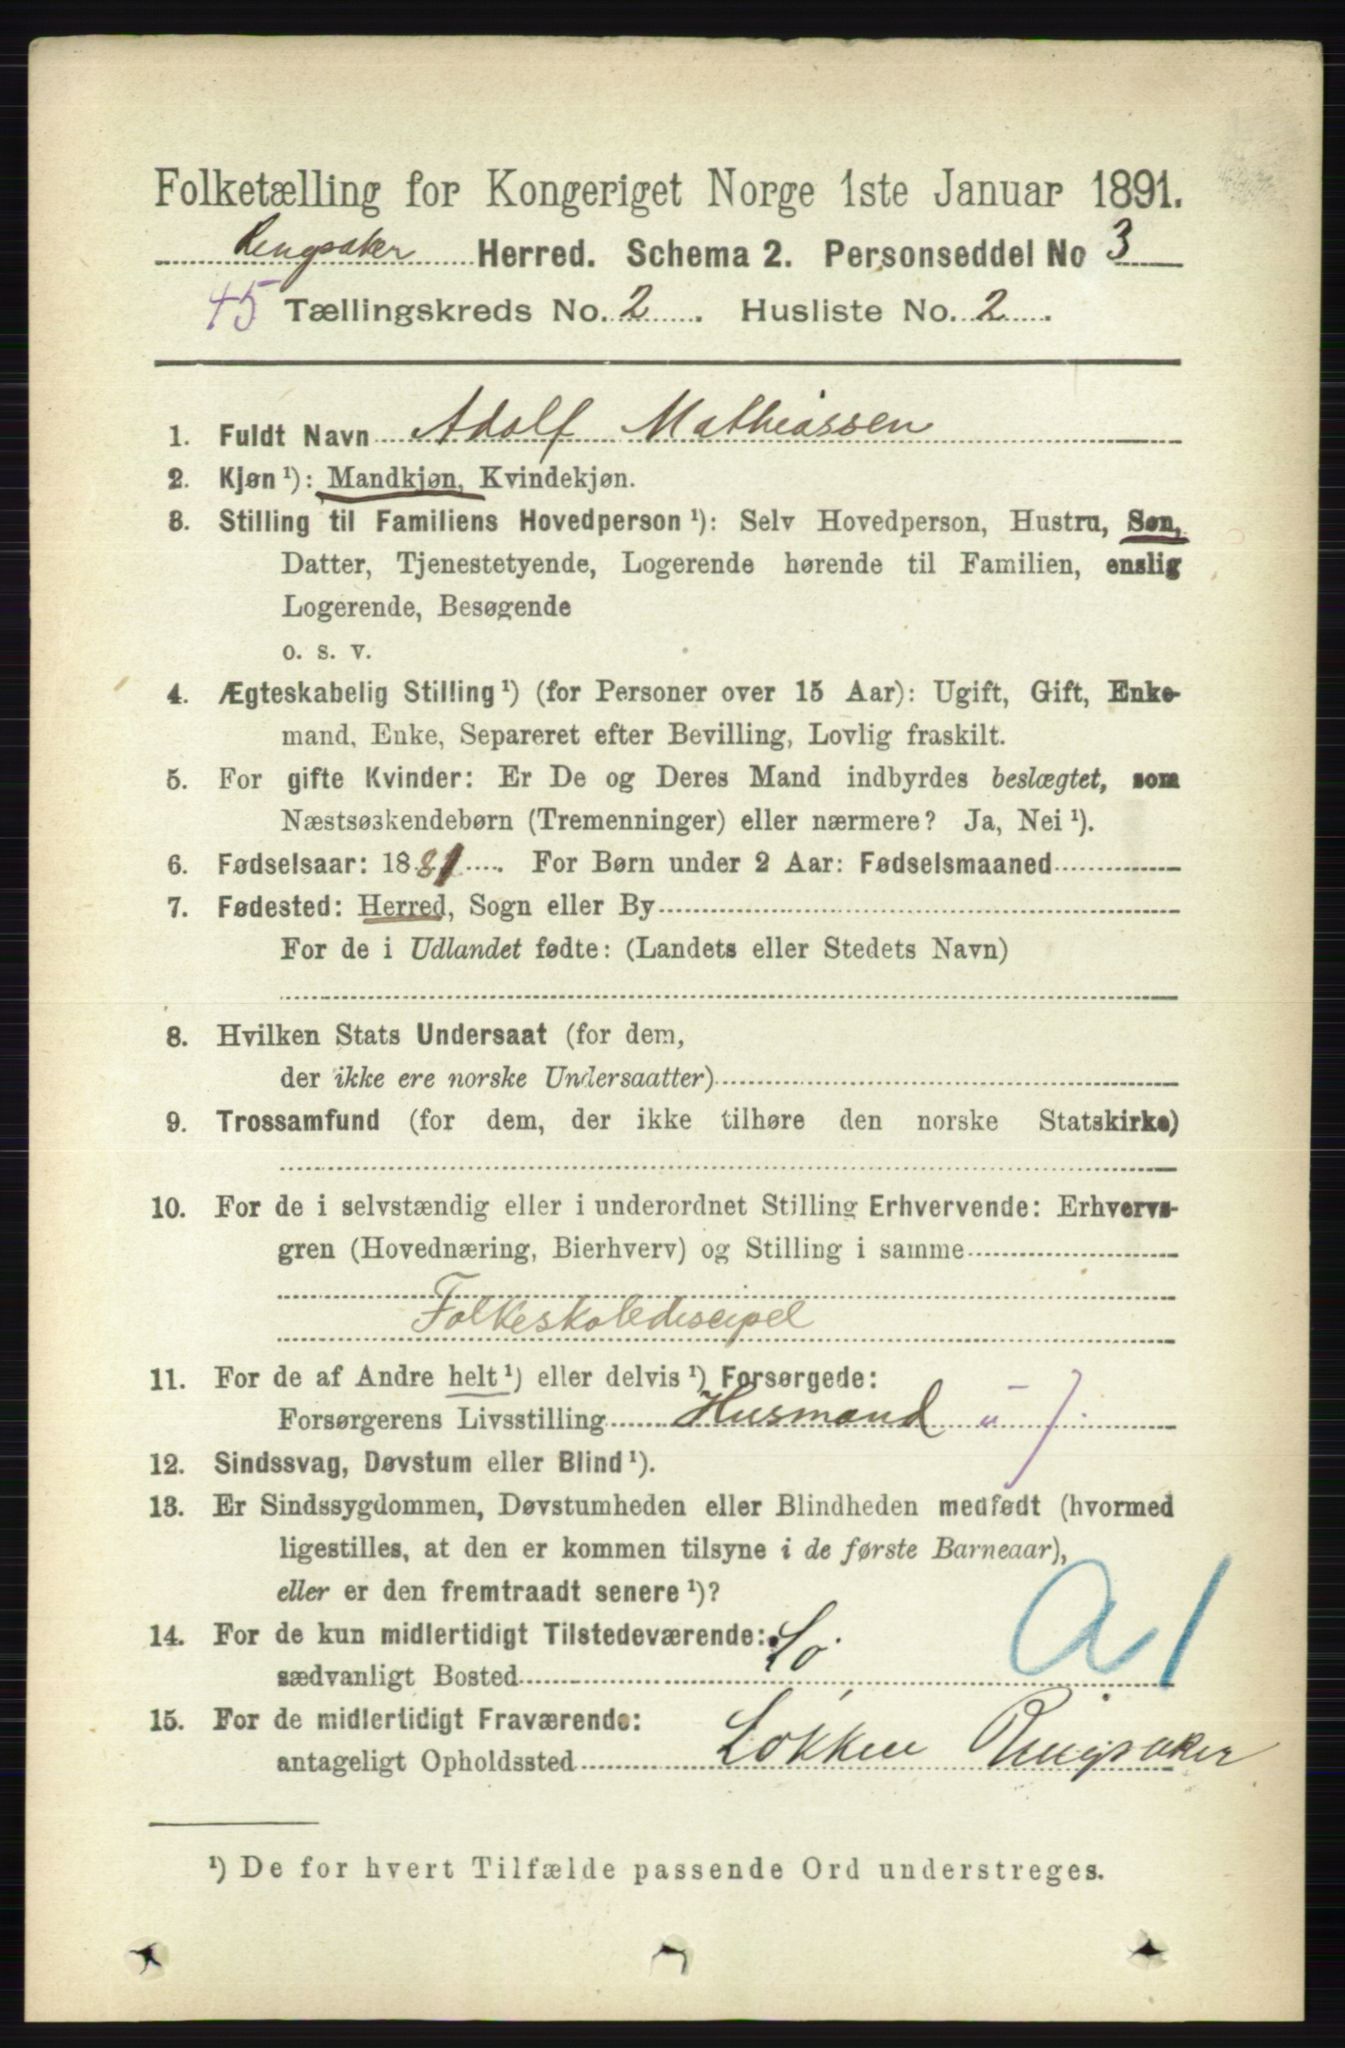 Folketælling for Kongeriget Norge 1ste Januar 1891.
Ringsaker Herred. Schema 2. Personseddel No 3
45 Tællingskreds No. 2. Husliste No. 2.
1. Fuldt Navn Adolf Mathiassen
2. Kjøn ¹): Mandkjøn, Kvindekjøn.
3. Stilling til Familiens Hovedperson ¹): Selv Hovedperson, Hustru, Søn,
Datter, Tjenestetyende, Logerende hørende til Familien, enslig
Logerende, Besøgende
o. s. v.
4. Ægteskabelig Stilling ¹) (for Personer over 15 Aar): Ugift, Gift, Enke-
mand, Enke, Separeret efter Bevilling, Lovlig fraskilt.
5. For gifte Kvinder: Er De og Deres Mand indbyrdes beslægtet, som
Næstsøskendebørn (Tremenninger) eller nærmere? Ja, Nei ¹).
6. Fødselsaar: 1881. For Børn under 2 Aar: Fødselsmaaned
7. Fødested: Herred, Sogn eller By
For de i Udlandet fødte: (Landets eller Stedets Navn)
8. Hvilken Stats Undersaat (for dem,
der ikke ere norske Undersaatter)
9. Trossamfund (for dem, der ikke tilhøre den norske Statskirke)
10. For de i selvstændig eller i underordnet Stilling Erhvervende: Erhvervs-
gren (Hovednæring, Bierhverv) og Stilling i samme
Folkeskolediscipel
11. For de af Andre helt ¹) eller delvis ¹) Forsørgede:
Forsørgerens Livsstilling Husmand u j.
12. Sindssvag, Døvstum eller Blind ¹).
13. Er Sindssygdommen, Døvstumheden eller Blindheden medfødt (hvormed
ligestilles, at den er kommen tilsyne i de første Barneaar),
eller er den fremtraadt senere ¹)?
14. For de kun midlertidigt Tilstedeværende: Lö a1
sædvanligt Bosted
15. For de midlertidigt Fraværende:
antageligt Opholdssted Løkken Ringsaker
¹) De for hvert Tilfælde passende Ord understreges.